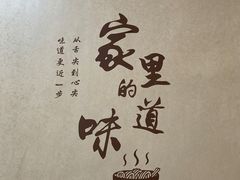 家里的味道
从舌尖到心尖
味道更近一步